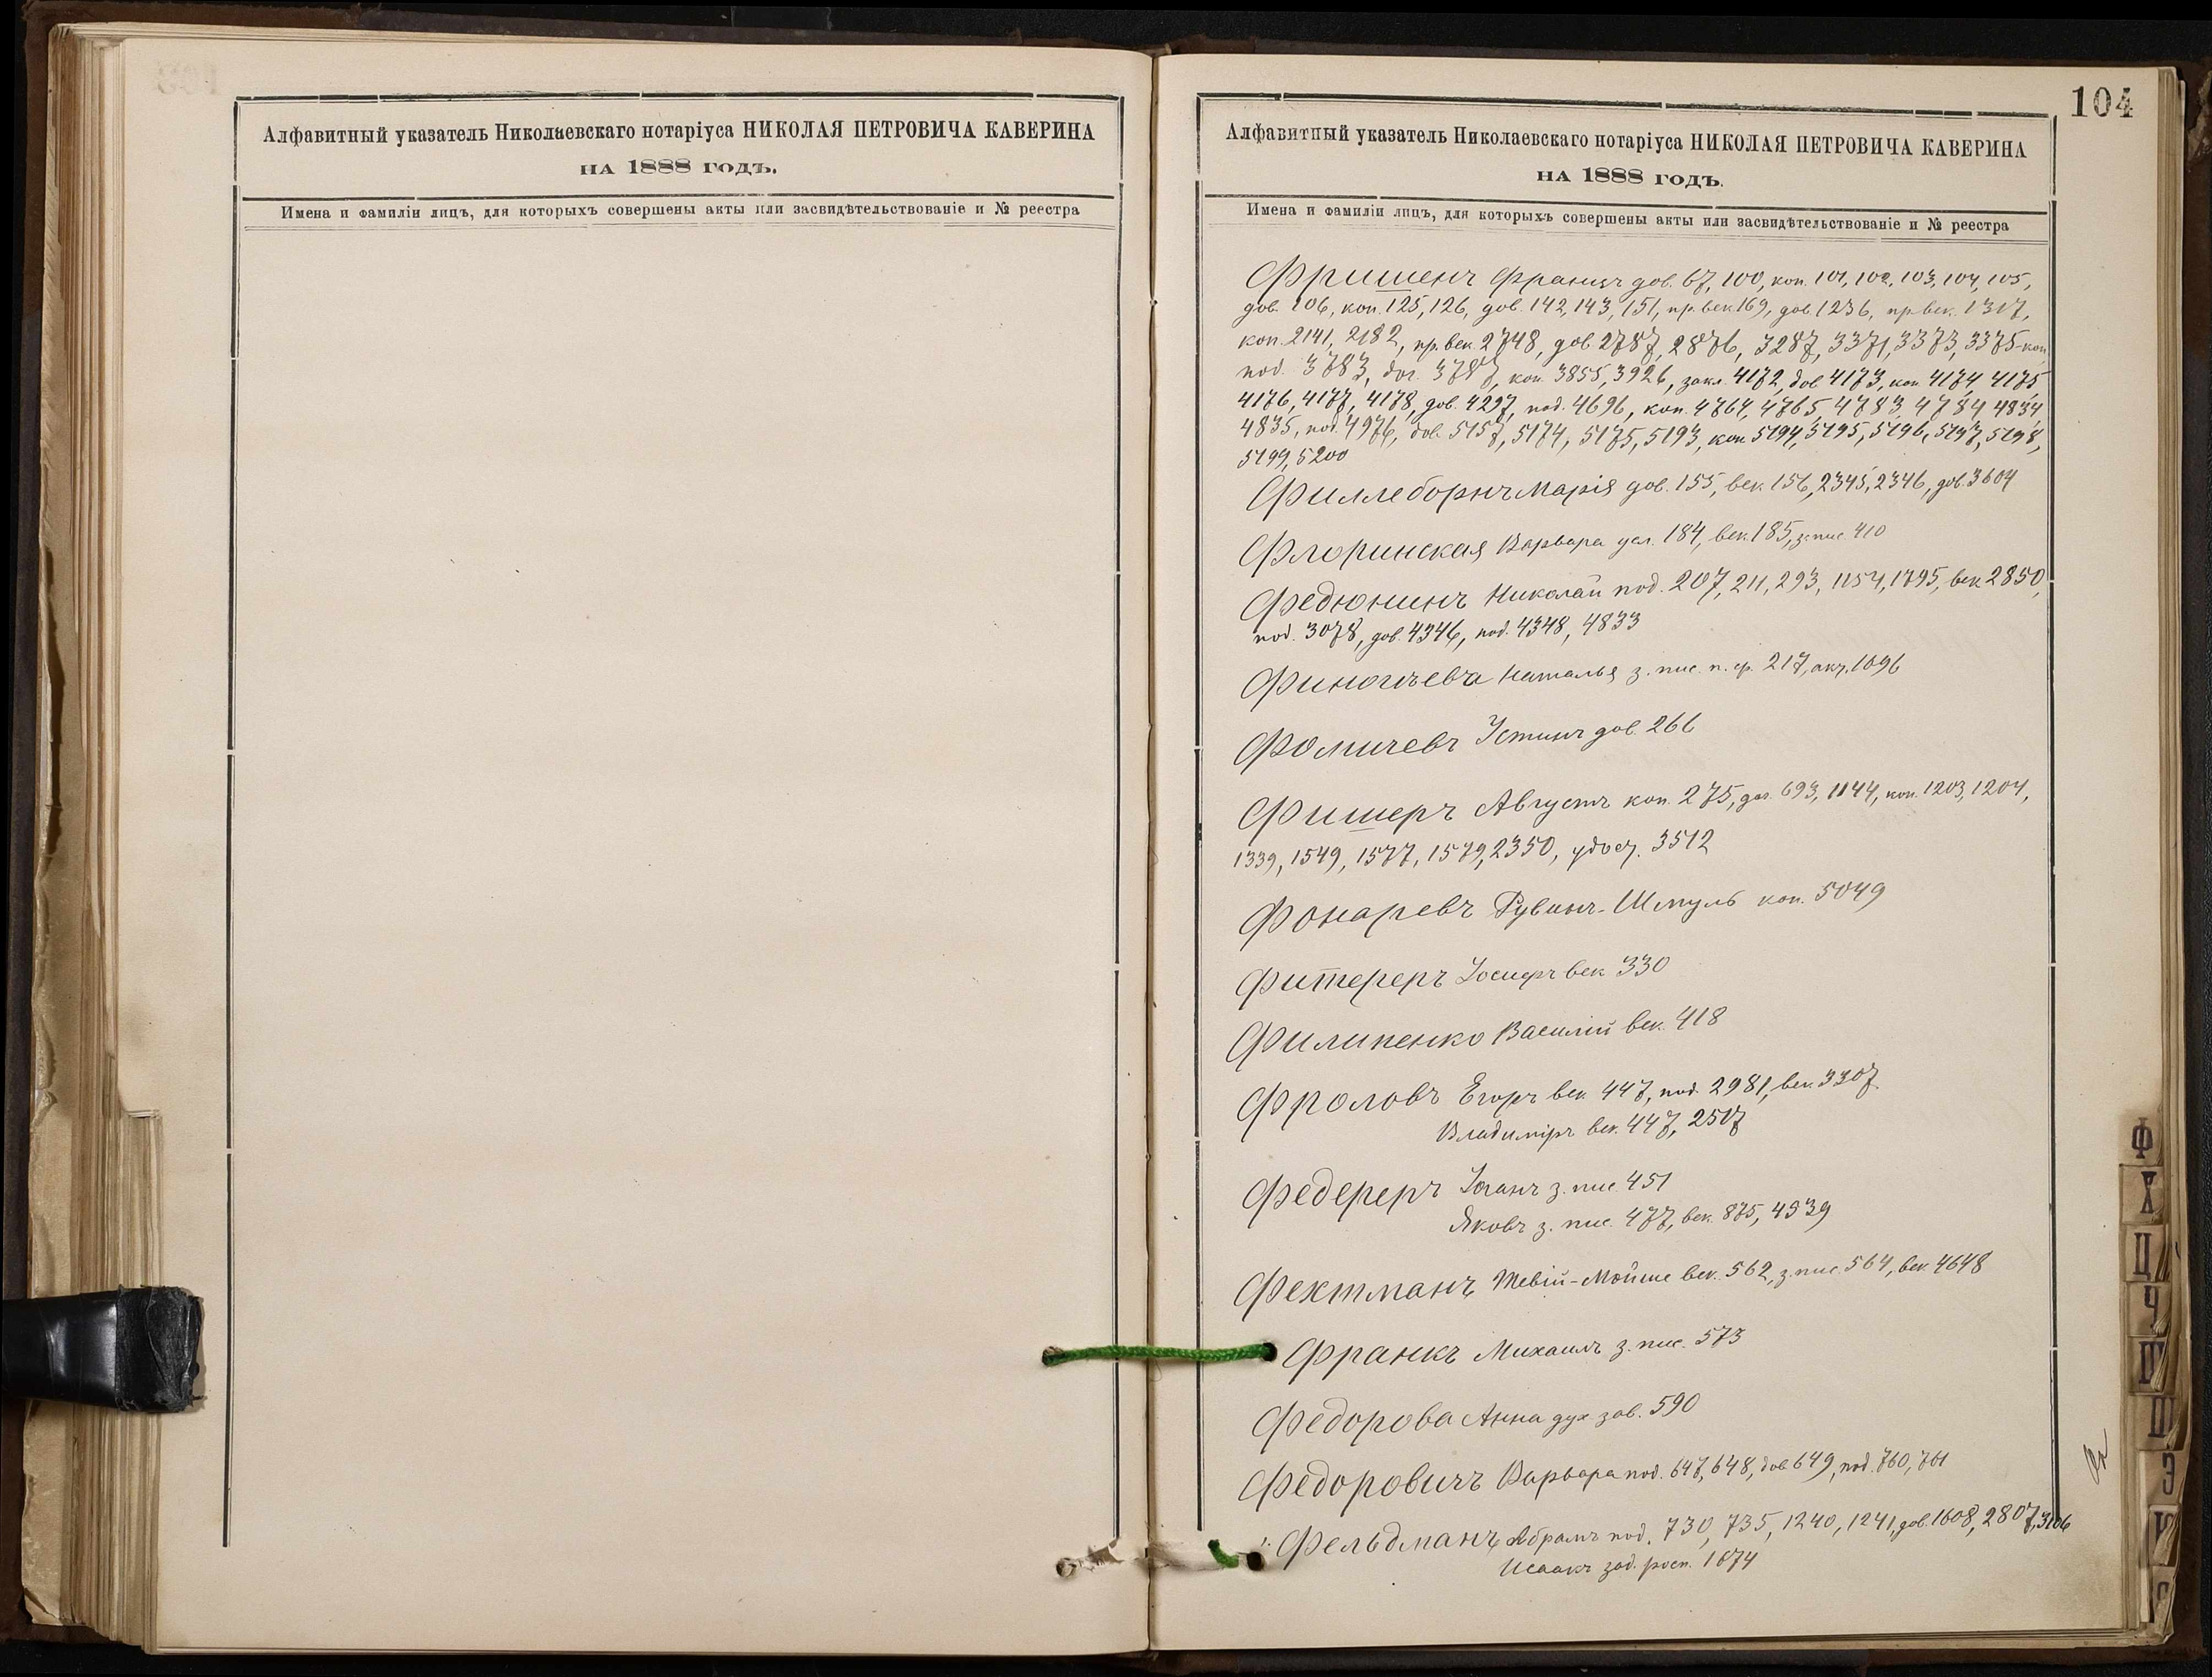 Алфавитный указатель Николаевскаго нотаріуса НИКОЛАЯ ПЕТРОВИЧА КАВЕРИНА
НА 1888 ГОДЪ.
Имена и фамиліи лицъ, для которыхъ совершены акты или засвидѣтельствованіе и № реестра
104
Алфавитный указатель Николаевскаго нотаріуса НИКОЛАЯ ПЕТРОВИЧА КАВЕРИНА
НА 1888 ГОДЪ.
Имена и фамиліи лицъ, для которыхъ совершены акты или засвидѣтельствованіе и № реестра
Фришенъ Францъ дов. 67, 100, коп. 101, 102, 103, 104, 105,
дов. 106, коп. 125, 126, дов. 142, 143, 151, пр. век. 169, дов. 1236, пр. век. 1317,
коп. 2141, 2182, пр. век. 2748, дов. 2787, 2876, 3287, 3371, 3373, 3375 коп
под. 3783, дог. 3787, коп. 3855, 3926, закл. 4172, дов. 4173, коп. 4174, 4175,
4176, 4177, 4178, дов. 4297, под. 4696, коп. 4764, 4765, 4783, 4784, 4834,
4835, под. 4976, дов. 5157, 5174, 5175, 5193, коп. 5194, 5195, 5196, 5197, 5198,
5199, 5200
Филлеборнъ Марія дов. 155, век. 156, 2345, 2346, дов. 3604
Флоринская Варвара усл. 184, век. 185, з. пис. 410
Федюнинъ Николай под. 207, 211, 293, 1154, 1795, век. 2850,
под. 3078, дов. 4346, под. 4348, 4833
Финогѣева Наталья з. пис. п. ср. 217, акт. 1096
Фомичевъ Устинъ дов. 266
Фишеръ Августъ коп. 275, дог. 693, 1144, коп. 1203, 1204,
1339, 1549, 1577, 1579, 2350, удост. 3512
Фонаревъ Рувинъ-Шмуль коп. 5049
Фитереръ Іосифъ век. 330
Филипенко Василій век. 418
Фроловъ Егоръ век. 447, под. 2981, век. 3307
Владиміръ век. 447, 2507
Федереръ Іоганъ з. пис. 451
Яковъ з. пис. 477, век. 875, 4939
Фехтманъ Тевій-Мойше век. 562, з. пис. 564, век. 4648
Франкъ Михаилъ з. пис. 573
Федорова Анна дух. зав. 590
Федоровичъ Варвара под. 647, 648, дов. 649, под. 760, 761
Фельдманъ Абрамъ под. 730, 735, 1240, 1241, дов. 1608, 2807, 3106
Исаакъ зад. росп. 1874
Ф
Х
Ц
Ч
Ш
Щ
Э